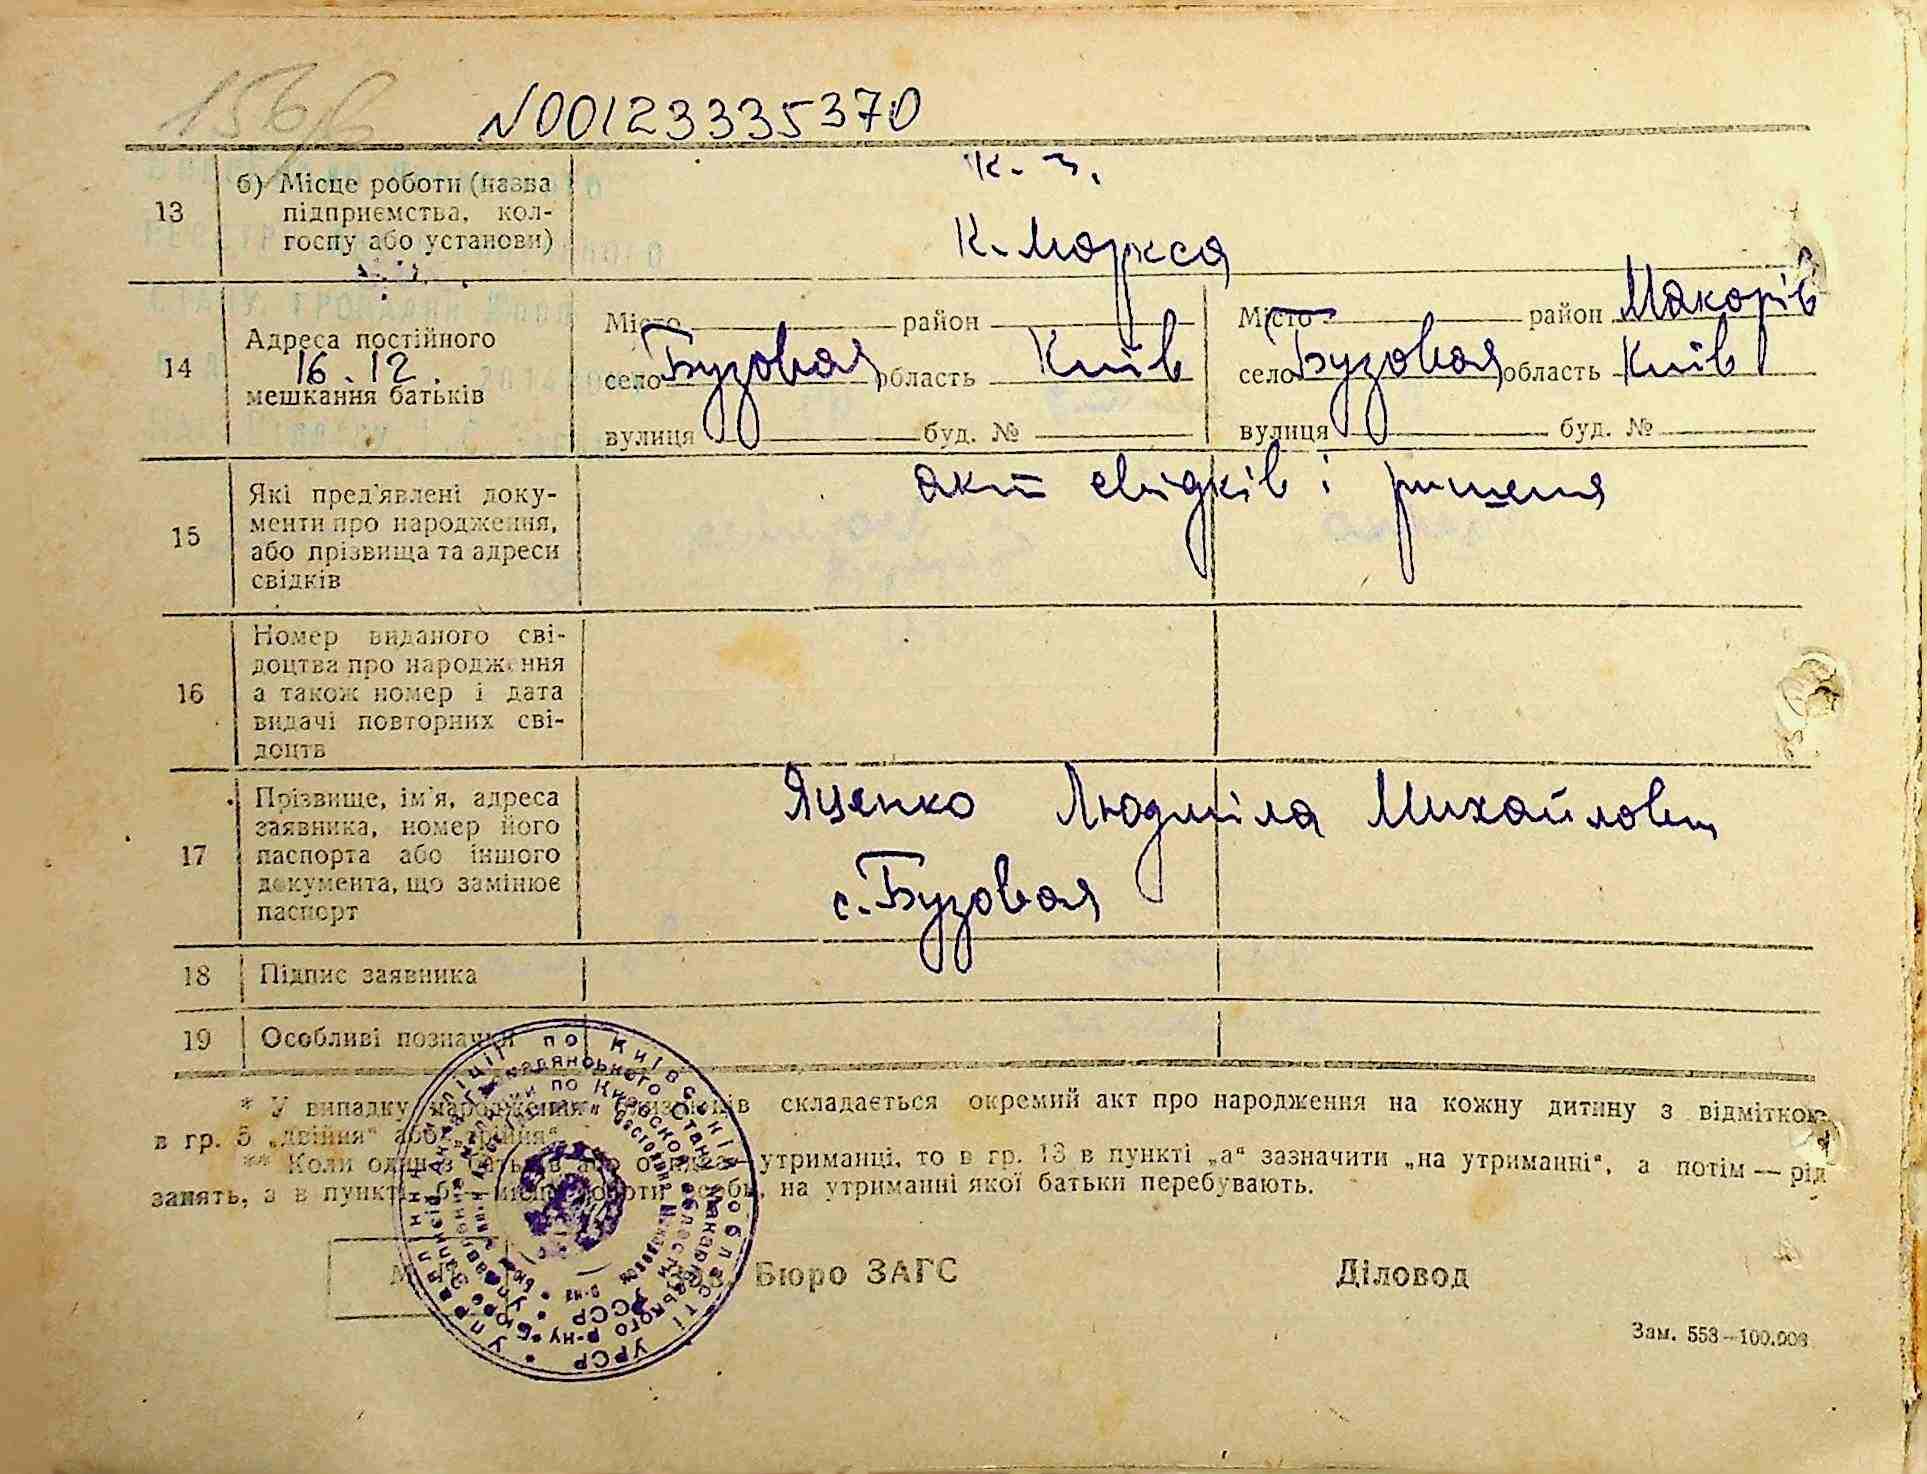 N00123335370
13 б) Місце роботи (назва підприємства, кол-
госпу або установи)
к. з.
К. Маркса
14 Адреса постійного
16.12.
мешкання батьків
Місто район
село Бузовая область Київ
вулиця буд. №
Місто район Макарів
село Бузовая область Київ
вулиця буд. №
15 Які пред'явлені доку-
менти про народження,
або прізвища та адреси
свідків
акт свідків і ришення
16 Номер виданого сві-
доцтва про народження
а також номер і дата
видачі повторних сві-
доцтв
17 Прізвище, ім'я, адреса
заявника, номер його
паспорта або іншого
документа, що замінює
паспорт
Яценко Людміла Михайловна
с. Бузовая
18 Підпис заявника
19 Особливі позначки
* У випадку народження близнюків складається окремий акт про народження на кожну дитину з відміткою
в гр. 5 „двійня“ або „трійня“.
** Коли один з батьків або обидва — утриманці, то в гр. 13 в пункті „а“ зазначити „на утриманні“, а потім — рід
занять, а в пункті „б“ місце роботи особи, на утриманні якої батьки перебувають.
Зав. Бюро ЗАГС Діловод
Зам. 553—100.000